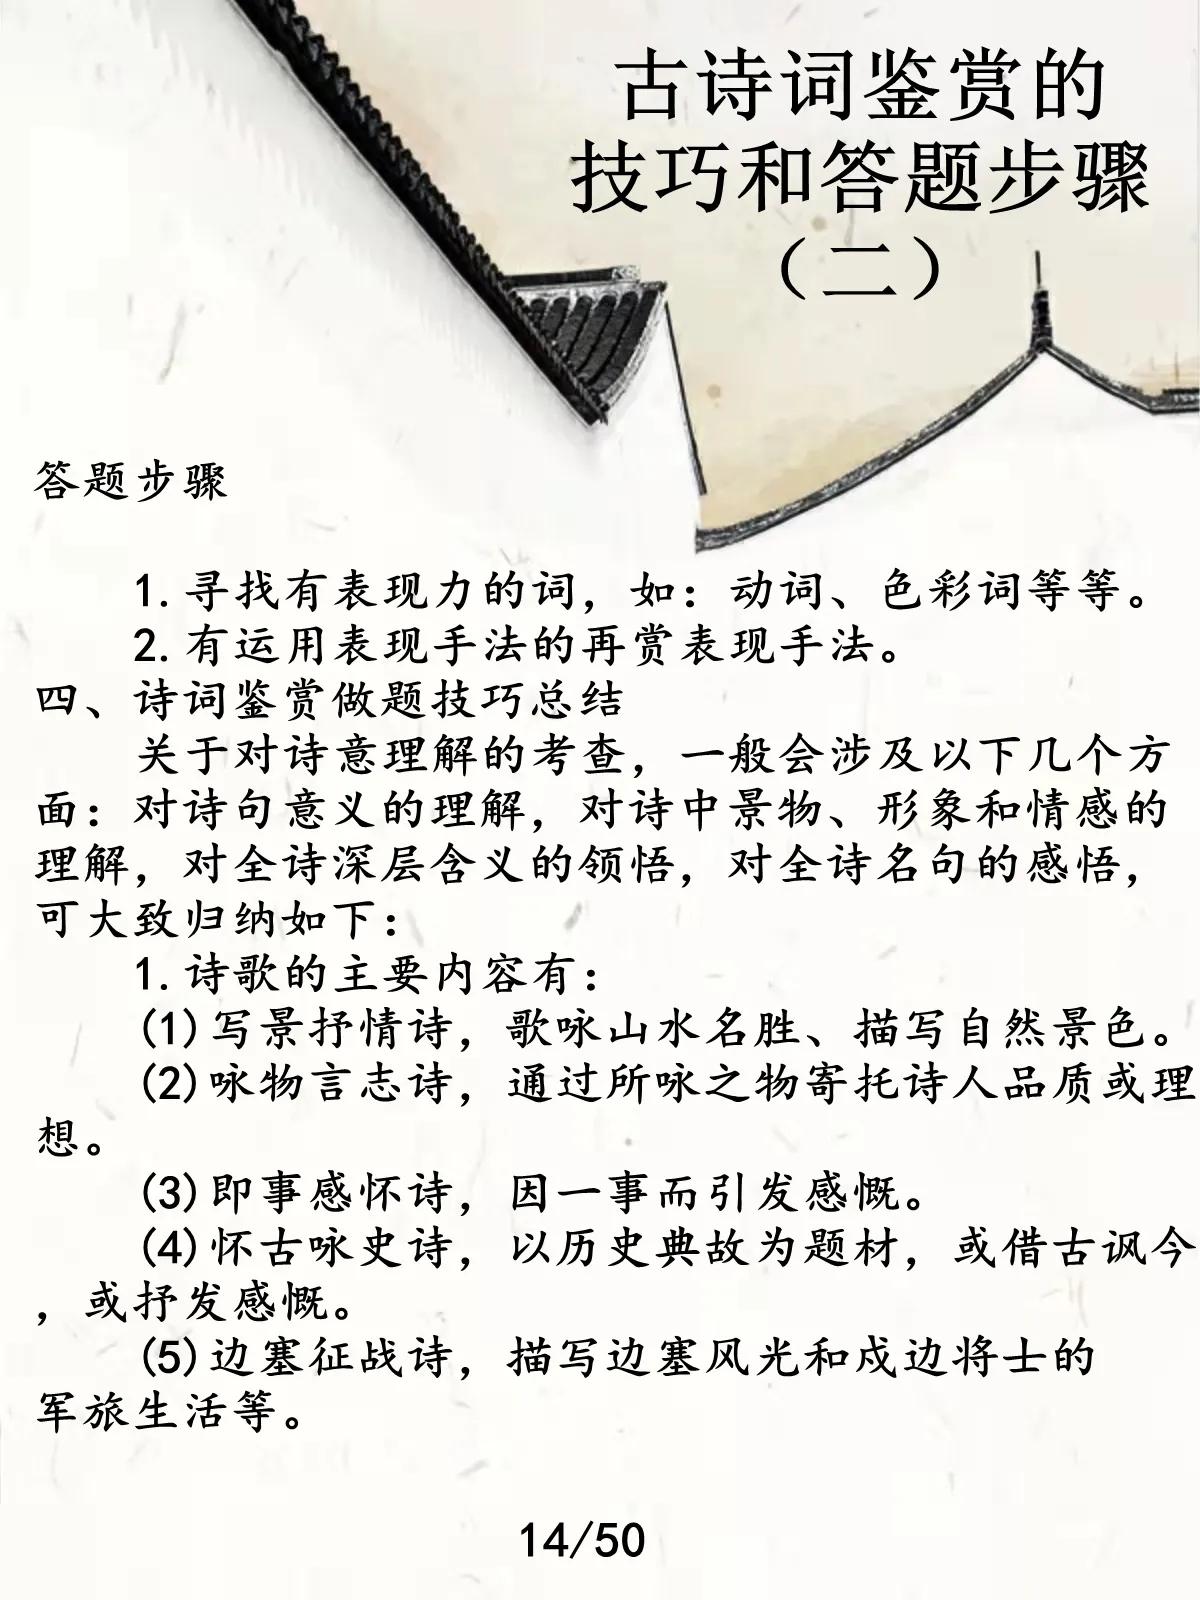 古诗词鉴赏的
技巧和答题步骤
（二）
答题步骤
1.寻找有表现力的词，如：动词、色彩词等等。
2.有运用表现手法的再赏表现手法。
四、诗词鉴赏做题技巧总结
关于对诗意理解的考查，一般会涉及以下几个方
面：对诗句意义的理解，对诗中景物、形象和情感的
理解，对全诗深层含义的领悟，对全诗名句的感悟，
可大致归纳如下：
1.诗歌的主要内容有：
(1)写景抒情诗，歌咏山水名胜、描写自然景色。
(2)咏物言志诗，通过所咏之物寄托诗人品质或理
想。
(3)即事感怀诗，因一事而引发感慨。
(4)怀古咏史诗，以历史典故为题材，或借古讽今
，或抒发感慨。
(5)边塞征战诗，描写边塞风光和戍边将士的
军旅生活等。
14/50